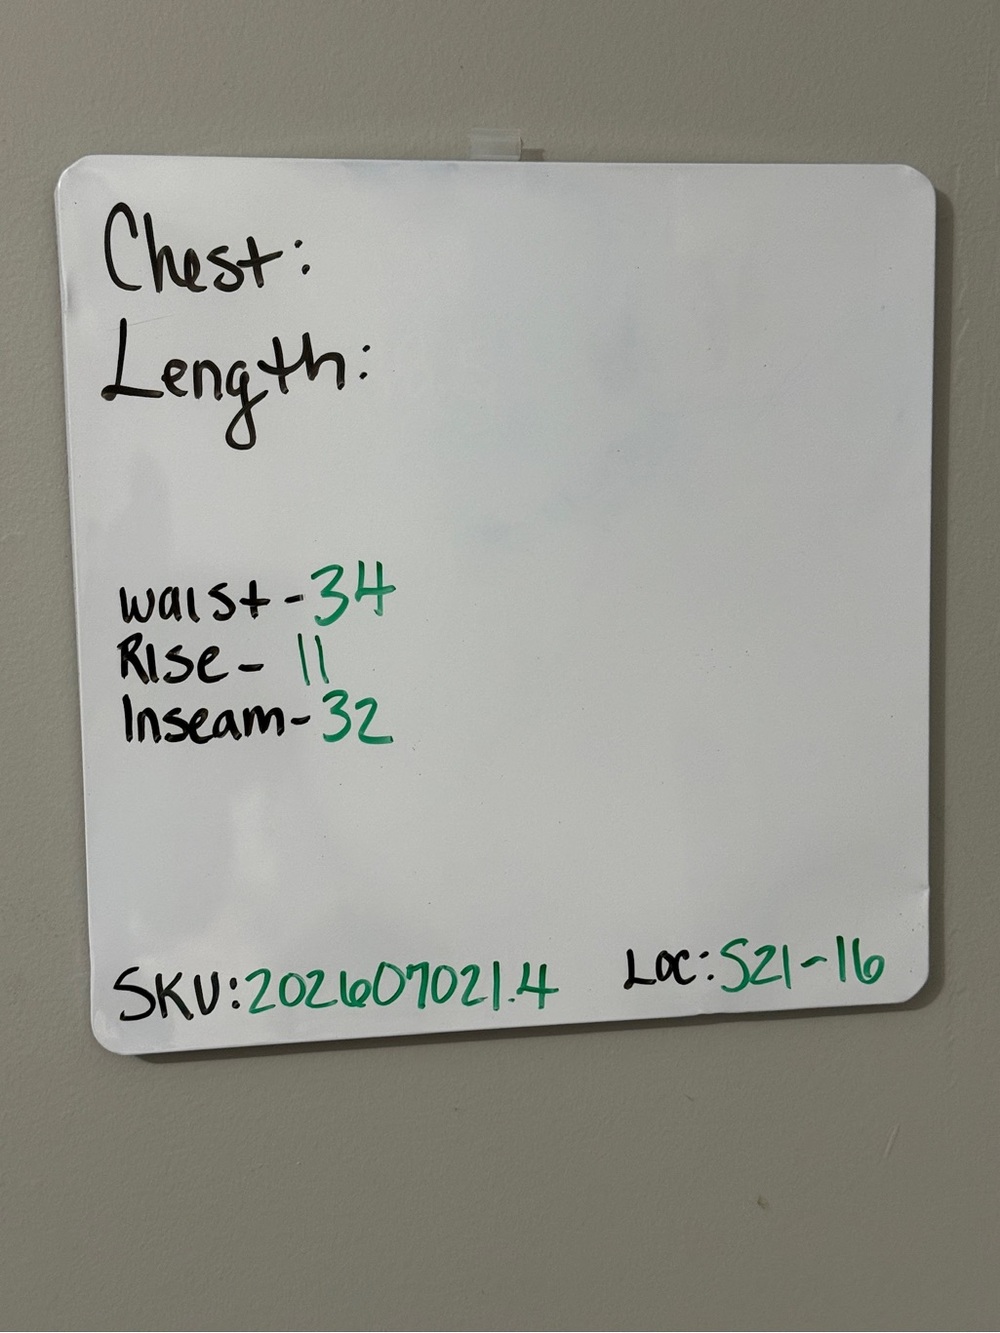 Chest:
Length:
waist-34
Rise- 11
Inseam-32
SKU:202607021.4 Loc:S21-16